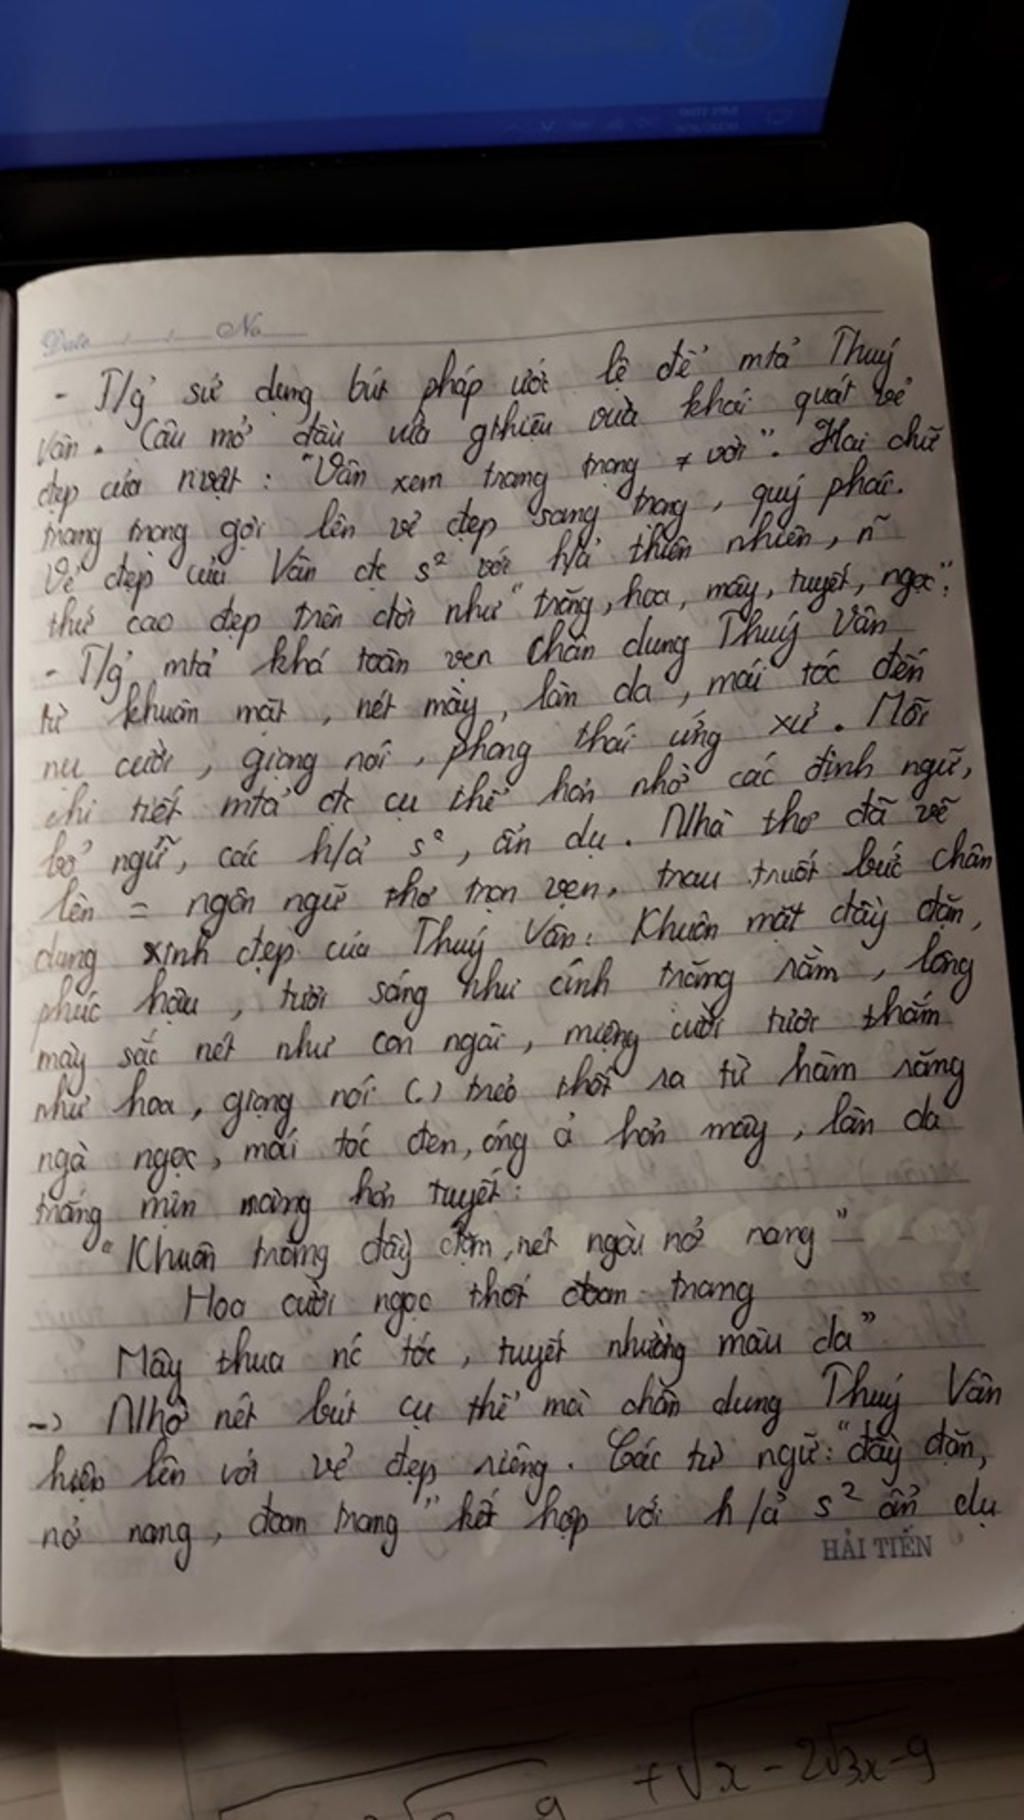 Date / / No
- T/g' sử dụng bút pháp ước lệ để mtả Thuý
Vân. Câu mở đầu vừa gthiệu vừa khái quát vẻ
đẹp của nvật: "Vân xem trang trọng ≠ vời". Hai chữ
trang trọng gợi lên vẻ đẹp sang trọng, quý phái.
Vẻ đẹp của Vân đc s² với h/ả thiên nhiên, ~
thứ cao đẹp trên đời như "trăng, hoa, mây, tuyết, ngọc".
- T/g' mtả khá toàn vẹn chân dung Thuý Vân
từ khuôn mặt, nét mày, làn da, mái tóc đến
nụ cười, giọng nói, phong thái ứng xử. Mỗi
chi tiết mtả đc cụ thể hơn nhờ các định ngữ,
bổ ngữ, các h/ả s², ẩn dụ. Nhà thơ đã vẽ
lên = ngôn ngữ thơ trọn vẹn, trau truốt bức chân
dung xinh đẹp của Thuý Vân: Khuôn mặt đầy đặn,
phúc hậu, tươi sáng như ánh trăng rằm, lông
mày sắc nét như con ngài, miệng cười tươi thắm
như hoa, giọng nói (.) trẻo thốt ra từ hàm răng
ngà ngọc, mái tóc đen, óng ả hơn mây, làn da
trắng mịn màng hơn tuyết:
"Khuôn trăng đầy đặn, nét ngài nở nang"
Hoa cười ngọc thốt đoan trang
Mây thua nc tóc, tuyết nhường màu da"
-> Nhờ nét bút cụ thể mà chân dung Thuý Vân
hiện lên với vẻ đẹp riêng. Các từ ngữ: "đầy đặn,
nở nang, đoan trang" kết hợp với h/ả s² ẩn dụ
HẢI TIẾN
+ √x - 2√3x - 9
9